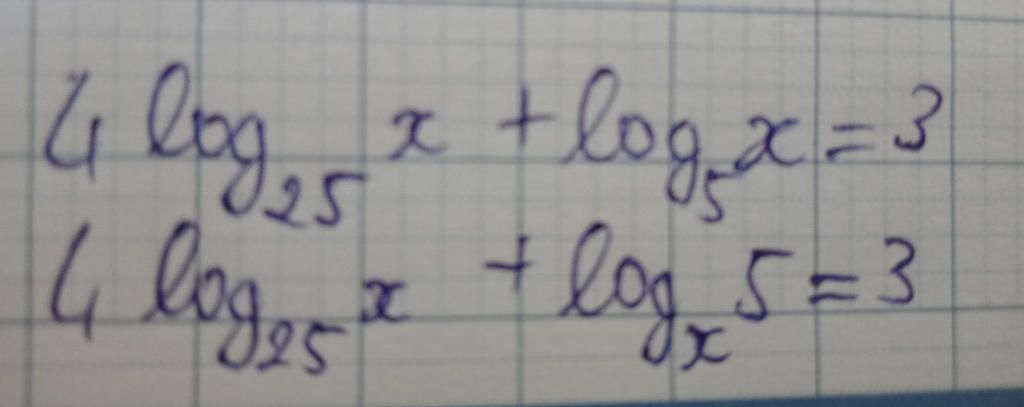 4 log₂₅ x + log₅ x = 3
4 log₂₅ x + logₓ 5 = 3